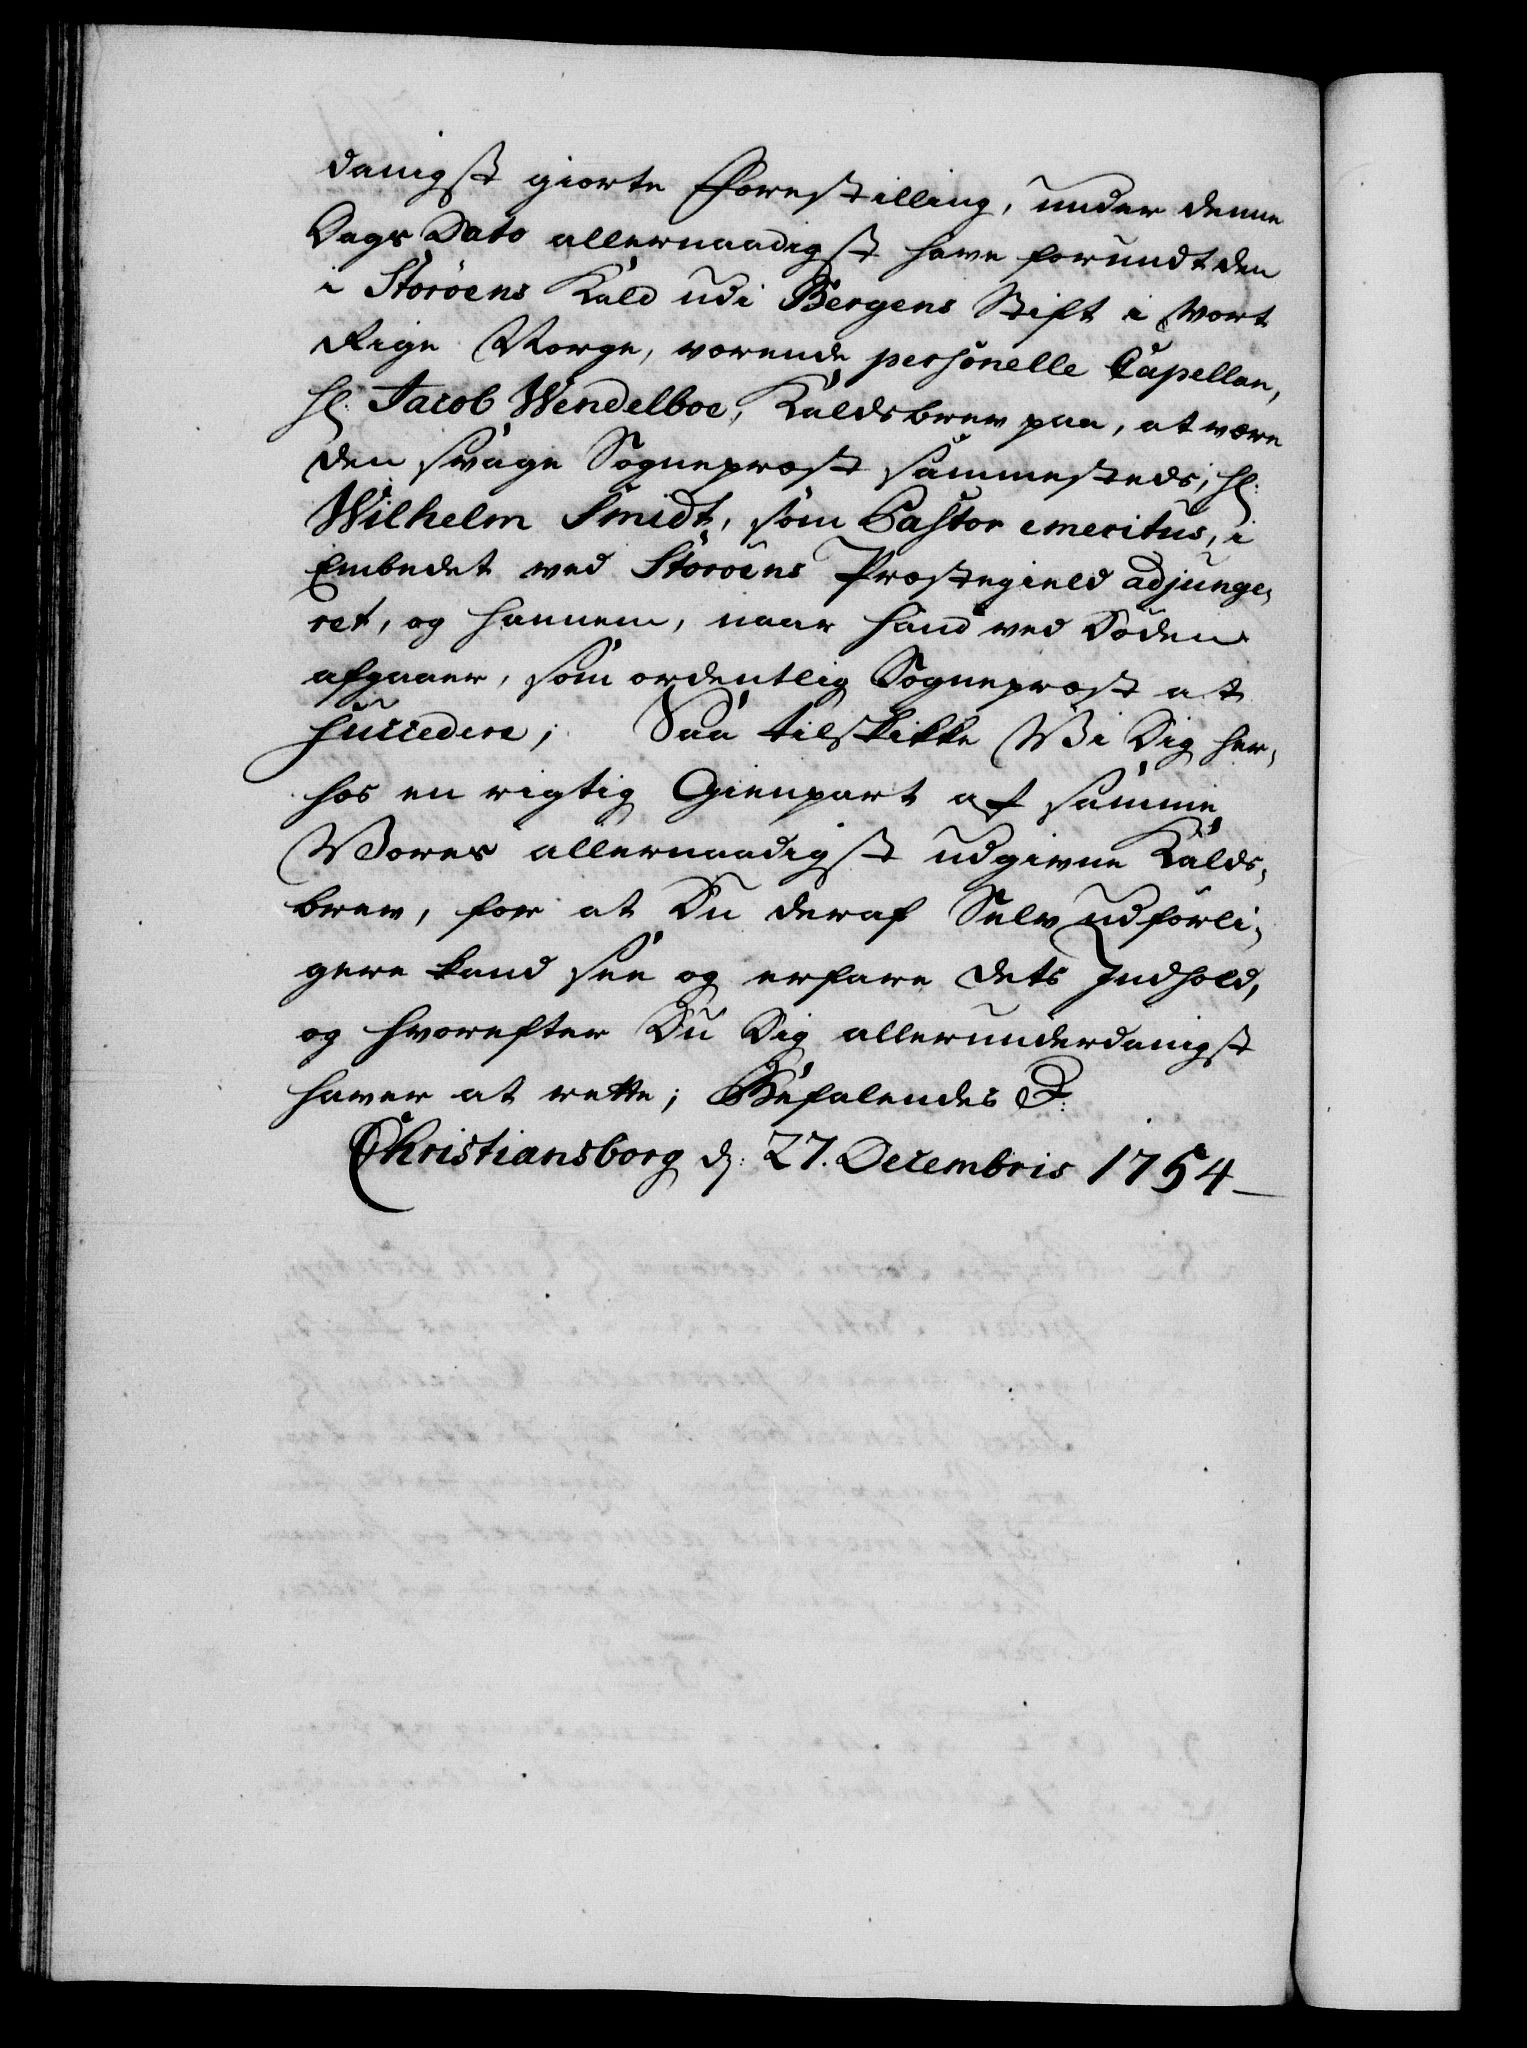 danigst giorte Forestilling, under denne
Dags Dato allernaadigst have forundt den
i Storöens Kald udi Bergens Stift i Vort
Rige Norge, værende personelle Capellan,
Hr: Jacob Wendelboe, Kaldsbrev paa, at være
den svage Sognepræst sammesteds, Hr:
Wilhelm Smidt, som Pastor emeritus, i
Embedet ved Storöens Præstegield adjunge,
ret, og hannem, naar hand ved Döden
afgaaer, som ordentlig Sognepræst at
succedere; Saa tilskikke Wi Dig her,
hos en rigtig Gienpart af samme
Wores allernaadigst udgivne Kalds,
brev, for at Du deraf Selv udförli,
gere kand see og erfare dets Indhold,
og hvorefter Du Dig allerunderdanigst
haver at rette; Befalendes &:
Christiansborg d: 27. Decembris 1754